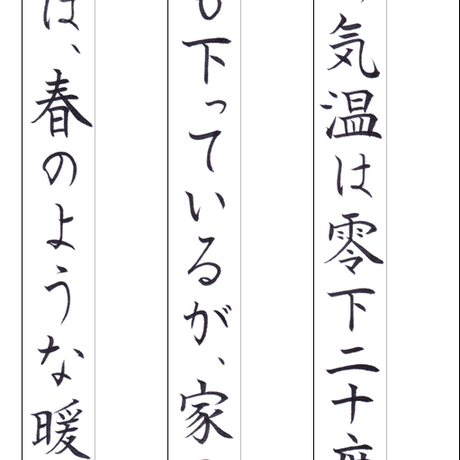 気温は零下二十度
も下っているが、家
は、春のような暖